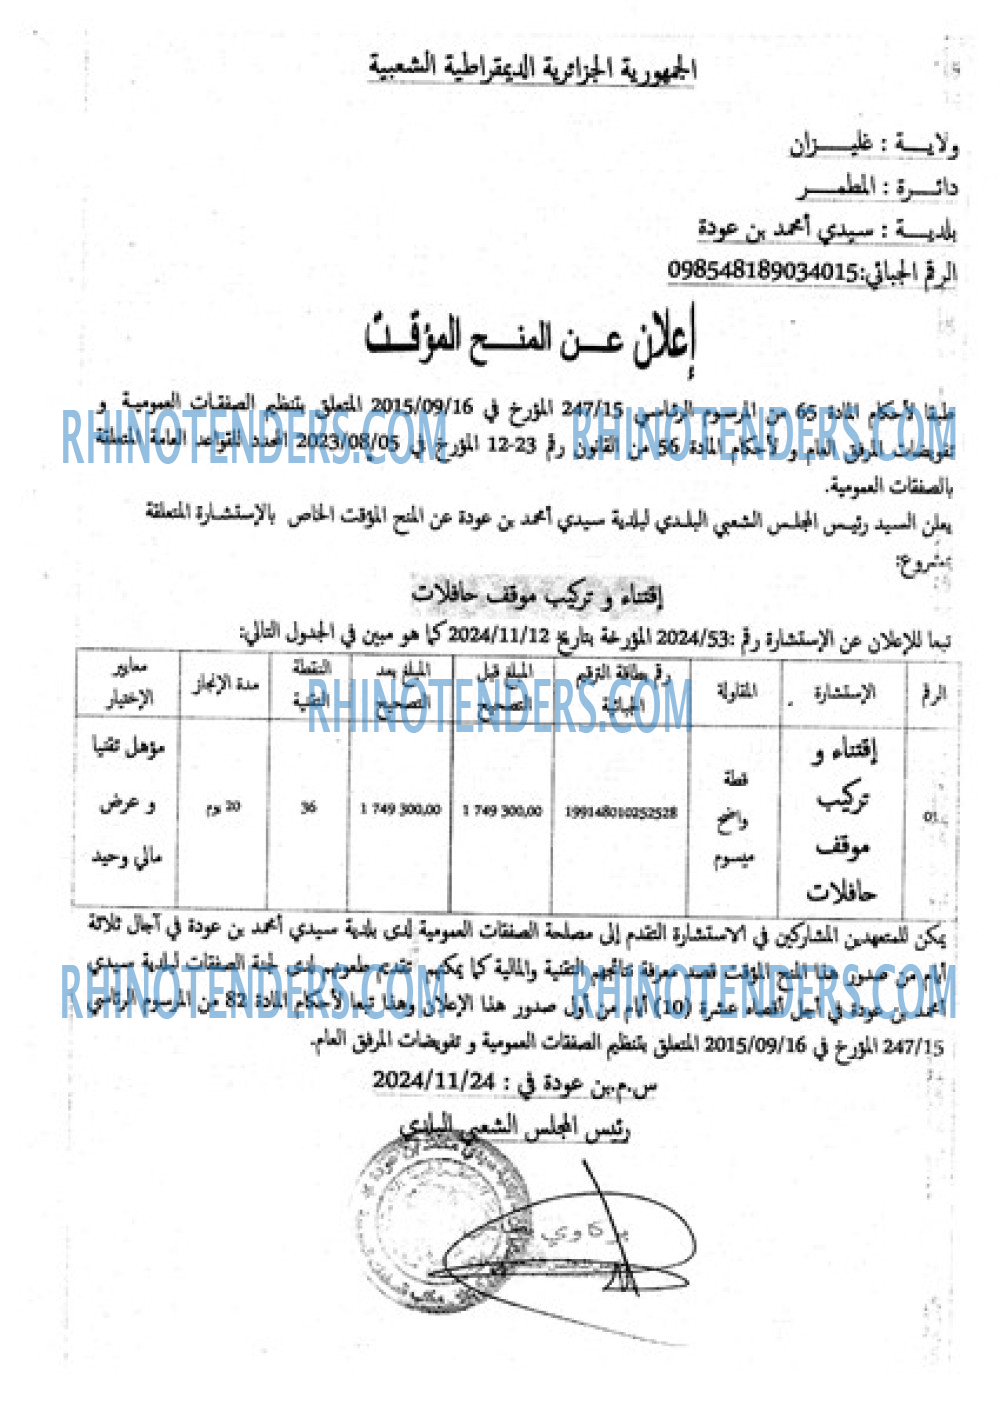 الجمهورية الجزائرية الديمقراطية الشعبية
ولايـــة : غليـــزان
دائـــرة : المطمـــر
بلديـــة : سيدي أمحمد بن عودة
الرقم الجبائي:098548189034015
إعلان عـــن المنـــح المؤقـــت
طبقا لأحكام المادة 65 من المرسوم الرئاسي 247/15 المؤرخ في 2015/09/16 المتعلق بتنظيم الصفقات العمومية و
تفويضات المرفق العام و لأحكام المادة 56 من القانون رقم 23-12 المؤرخ في 2023/08/05 المحدد للقواعد العامة المتعلقة
بالصفقات العمومية.
يعلن السيد رئيس المجلس الشعبي البلدي لبلدية سيدي أمحمد بن عودة عن المنح المؤقت الخاص بالإستشارة المتعلقة
بمشروع:
إقتناء و تركيب موقف حافلات
تبعا للإعلان عن الإستشارة رقم :2024/53 المؤرخة بتاريخ 2024/11/12 كما هو مبين في الجدول التالي:
الرقم الإستشارة المقاولة رقم بطاقة الترقيم الجبائية المبلغ قبل التصحيح المبلغ بعد التصحيح النقطة التقنية مدة الإنجاز معايير الإختيار
01 إقتناء و تركيب موقف حافلات قطة واضح ميسوم 199148010252528 1 749 300,00 1 749 300,00 36 20 يوم مؤهل تقنيا و عرض مالي وحيد
يمكن للمتعهدين المشاركين في الاستشارة التقدم إلى مصلحة الصفقات العمومية لدى بلدية سيدي أمحمد بن عودة في آجال ثلاثة
أيام من صدور هذا المنح المؤقت قصد معرفة نتائجهم التقنية والمالية كما يمكنهم تقديم طعونهم لدى لجنة الصفقات لبلدية سيدي
أمحمد بن عودة في أجل أقصاه عشرة (10) أيام من أول صدور هذا الإعلان وهذا تبعا لأحكام المادة 82 من المرسوم الرئاسي
247/15 المؤرخ في 2015/09/16 المتعلق بتنظيم الصفقات العمومية و تفويضات المرفق العام.
س.م.بن عودة في : 2024/11/24
رئيس المجلس الشعبي البلدي
RHINOTENDERS.COM RHINOTENDERS.COM
RHINOTENDERS.COM
RHINOTENDERS.COM RHINOTENDERS.COM